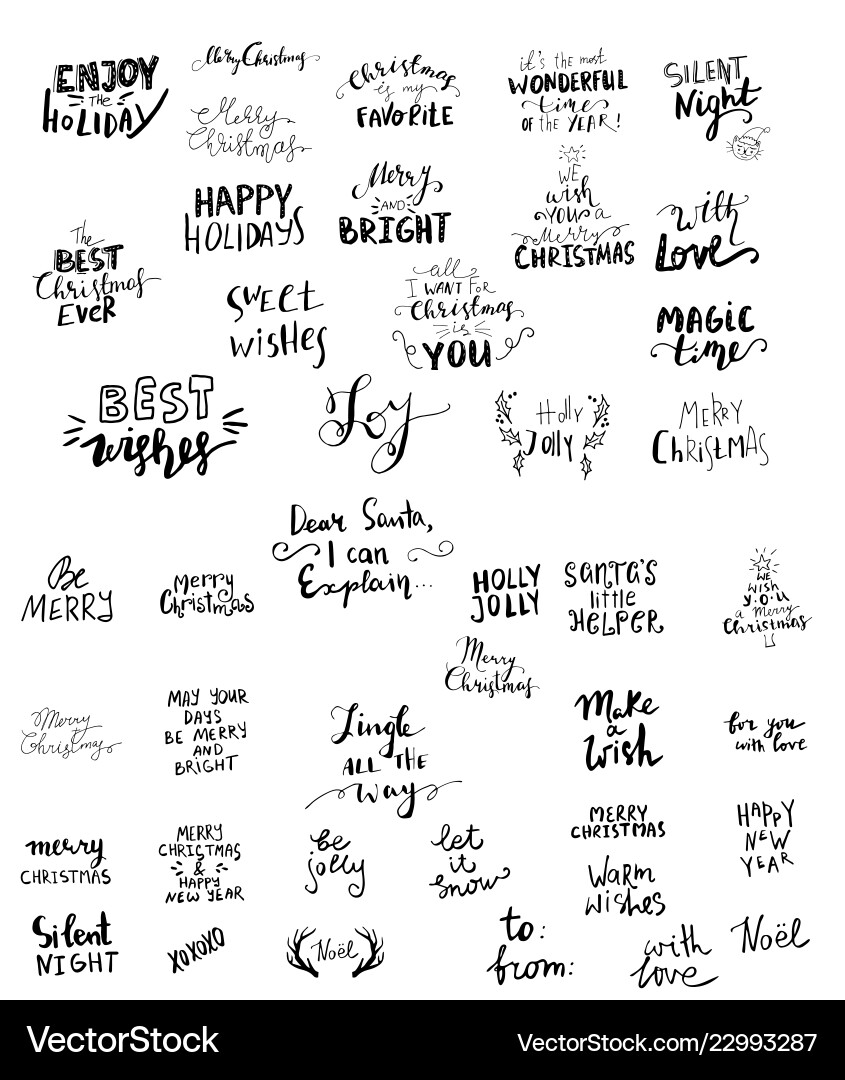 ENJOY
THE
HOLIDAY
Merry Christmas
Merry
Christmas
Christmas
is my
FAVORITE
it's the most
WONDERFUL
time
OF the YEAR!
SILENT
Night
HAPPY
HOLIDAYS
Merry
AND
BRIGHT
WE
wish
YOU a
Merry
CHRISTMAS
with
Love
The
BEST
Christmas
EVER
SWEET
wisHes
all
I WANT FOR
Christmas
is
YOU
MAGIC
time
BEST
wishes
Joy
Holly
Jolly
MERRY
CHRISTMAS
Dear Santa,
I can
Explain...
Be
MERRY
Merry
Christmas
HOLLY
JOLLY
SANTA'S
little
HELPER
WE
WISH
Y.O.U
a Merry
Christmas
Merry
Christmas
Merry
Christmas
MAY YOUR
DAYS
BE MERRY
AND
BRIGHT
Jingle
ALL THE
Way
Make
a
Wish
for you
with love
merry
CHRISTMAS
MERRY
CHRISTMAS
&
HAPPY
NEW YEAR
be
jolly
let
it
snow
MERRY
CHRISTMAS
HAPPY
NEW
YEAR
WARM
WisHes
Silent
NIGHT
XOXOXO
Noël
to:
from:
with
love
Noël
VectorStock
VectorStock.com/22993287